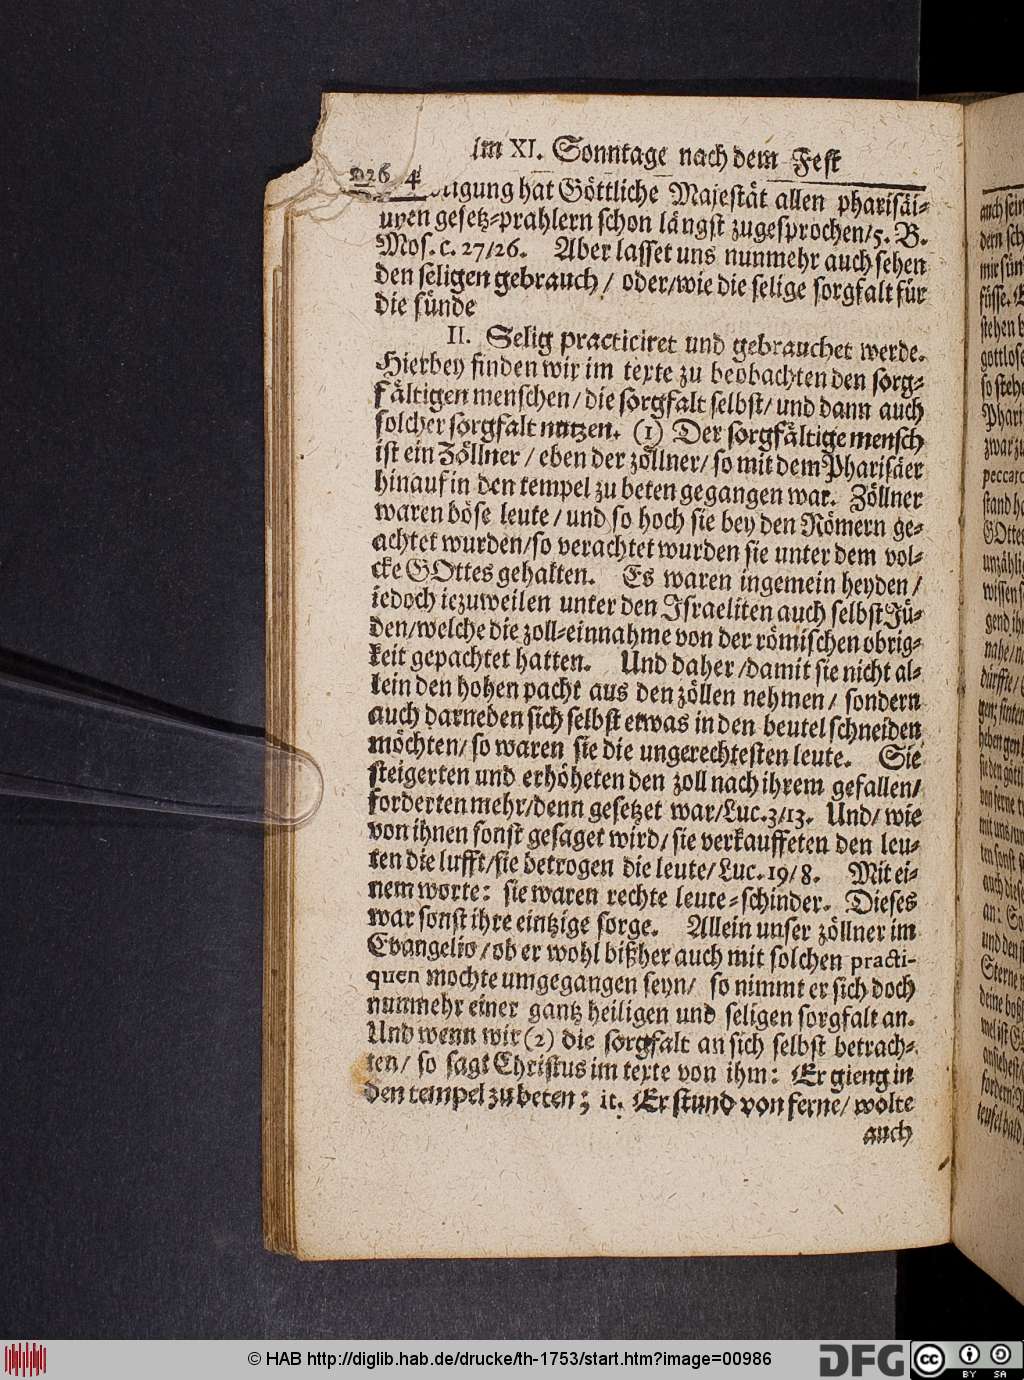 Im XI. Sonntage nach dem Fest
926 4
digung hat Göttliche Majestät allen pharisäi-
gesetz-prahlern schon längst zugesprochen/5. B.
Mos. c. 27/26. Aber lasset uns nunmehr auch sehen
den seligen gebrauch / oder/wie die selige sorgfalt für
die sünde
II. Selig practiciret und gebrauchet werde.
Hierbey finden wir im texte zu beobachten den sorg-
fältigen menschen/ die sorgfalt selbst/ und dann auch
solcher sorgfalt nutzen. (1) Der sorgfältige mensch
ist ein Zöllner / eben der zöllner/ so mit dem Pharisäer
hinauf in den tempel zu beten gegangen war. Zöllner
waren böse leute / und so hoch sie bey den Römern ge-
achtet wurden/so verachtet wurden sie unter dem vol-
cke GOttes gehalten. Es waren ingemein heyden /
iedoch iezuweilen unter den Israeliten auch selbst Jü-
den/welche die zoll-einnahme von der römischen obrig-
keit gepachtet hatten. Und daher /damit sie nicht al-
lein den hohen pacht aus den zöllen nehmen / sondern
auch darneben sich selbst etwas in den beutel schneiden
möchten/ so waren sie die ungerechtesten leute. Sie
steigerten und erhöheten den zoll nach ihrem gefallen/
forderten mehr/denn gesetzet war/Luc.3/13. Und/ wie
von ihnen sonst gesaget wird/ sie verkauffeten den leu-
ten die lufft/sie betrogen die leute/ Luc. 19/8. Mit ei-
nem worte: sie waren rechte leute-schinder. Dieses
war sonst ihre eintzige sorge. Allein unser zöllner im
Evangelio /ob er wohl bißher auch mit solchen practi-
quen mochte umgegangen seyn/ so nimmt er sich doch
nunmehr einer gantz heiligen und seligen sorgfalt an.
Und wenn wir (2) die sorgfalt an sich selbst betrach-
ten/ so sagt Christus im texte von ihm: Er gieng in
den tempel zu beten; it. Er stund von ferne/ wolte
auch
© HAB http://diglib.hab.de/drucke/th-1753/start.htm?image=00986
DFG cc BY SA